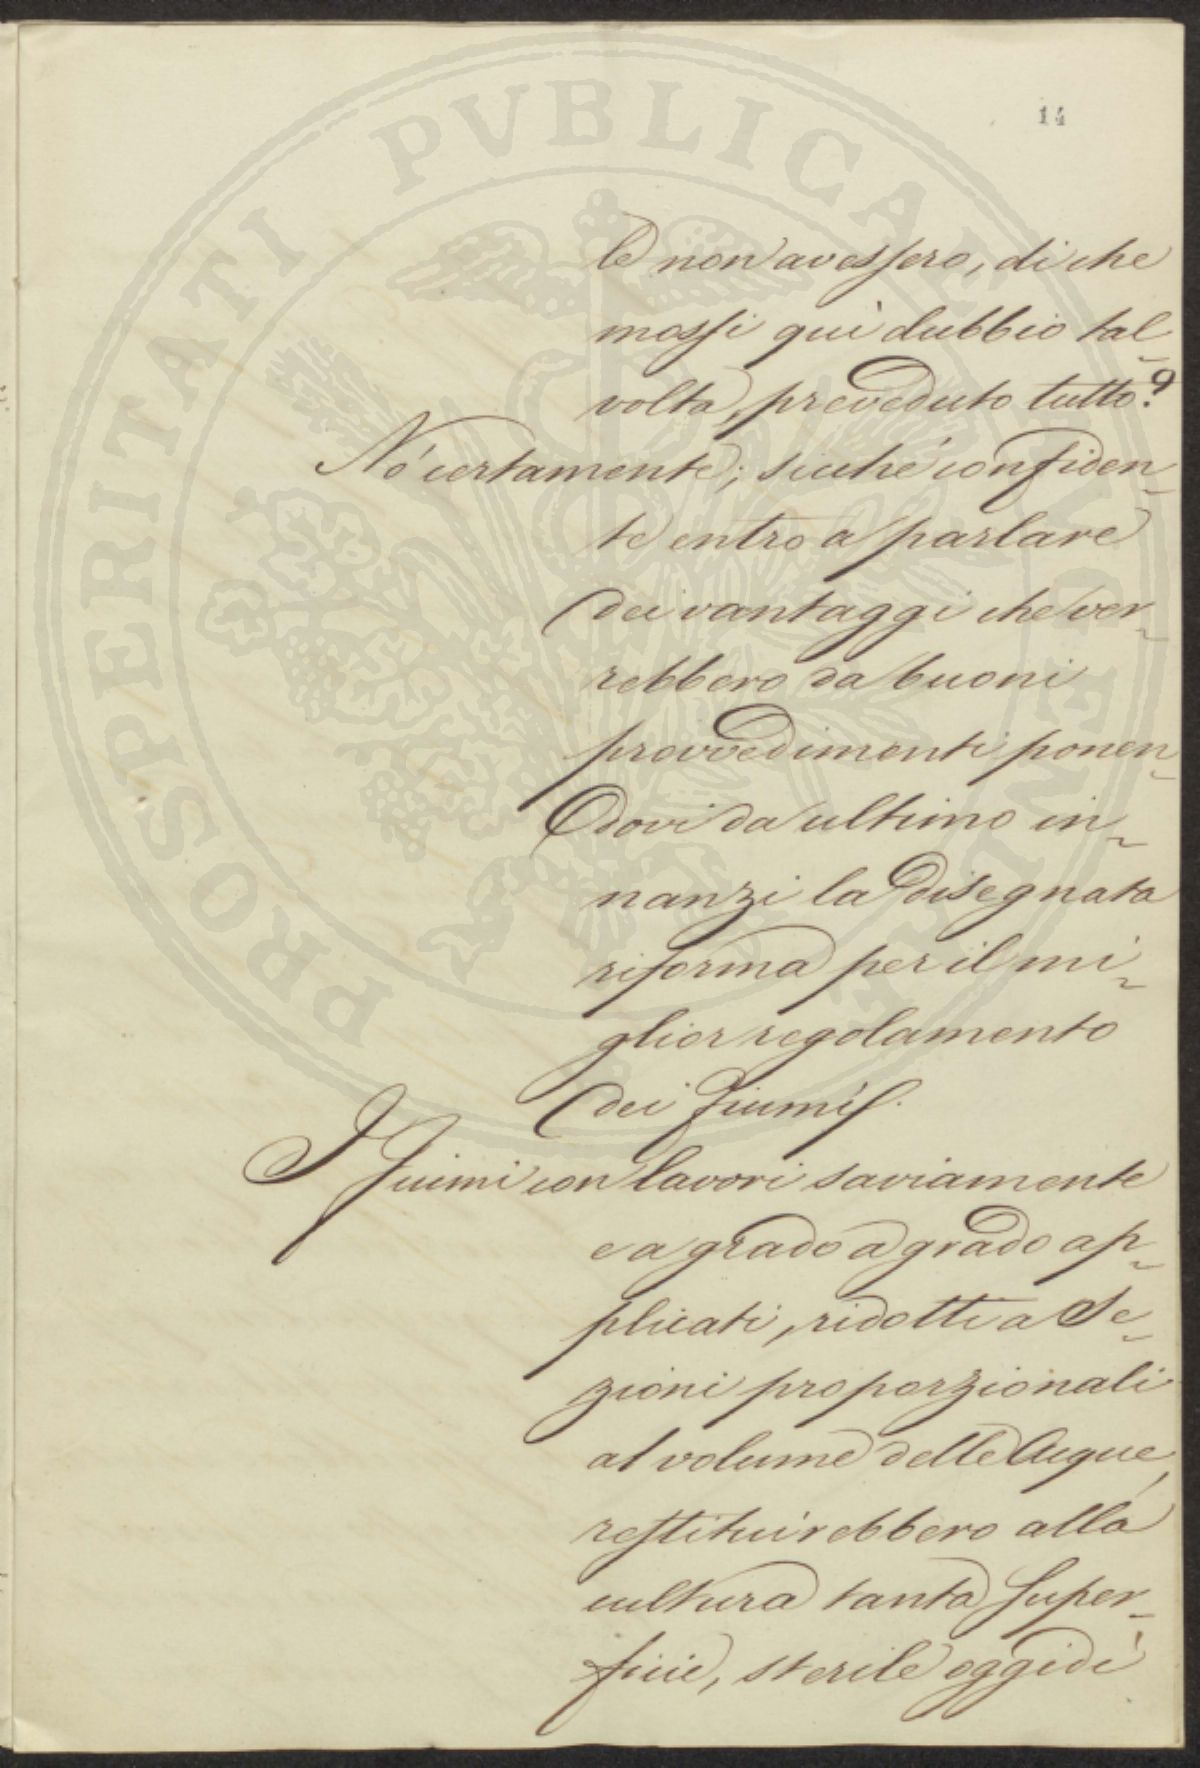 14
le non avessero, di che
mossi quì dubbio tal-
volta, preveduto tutto?
Nò certamente; sicché confiden-
te entro a parlare
dei vantaggi che ver-
rebbero da buoni
provvedimenti ponen-
dovi da ultimo in-
nanzi la disegnata
riforma per il mi-
glior regolamento
dei fiumi.
I Fiumi con lavori saviamente
e a grado a grado ap-
plicati, ridotti a Se-
zioni proporzionali
al volume delle Acque,
restituirebbero alla
cultura tanta super-
ficie, sterile oggidì
PROSPERITATI PVBLICAE AVGENDAE